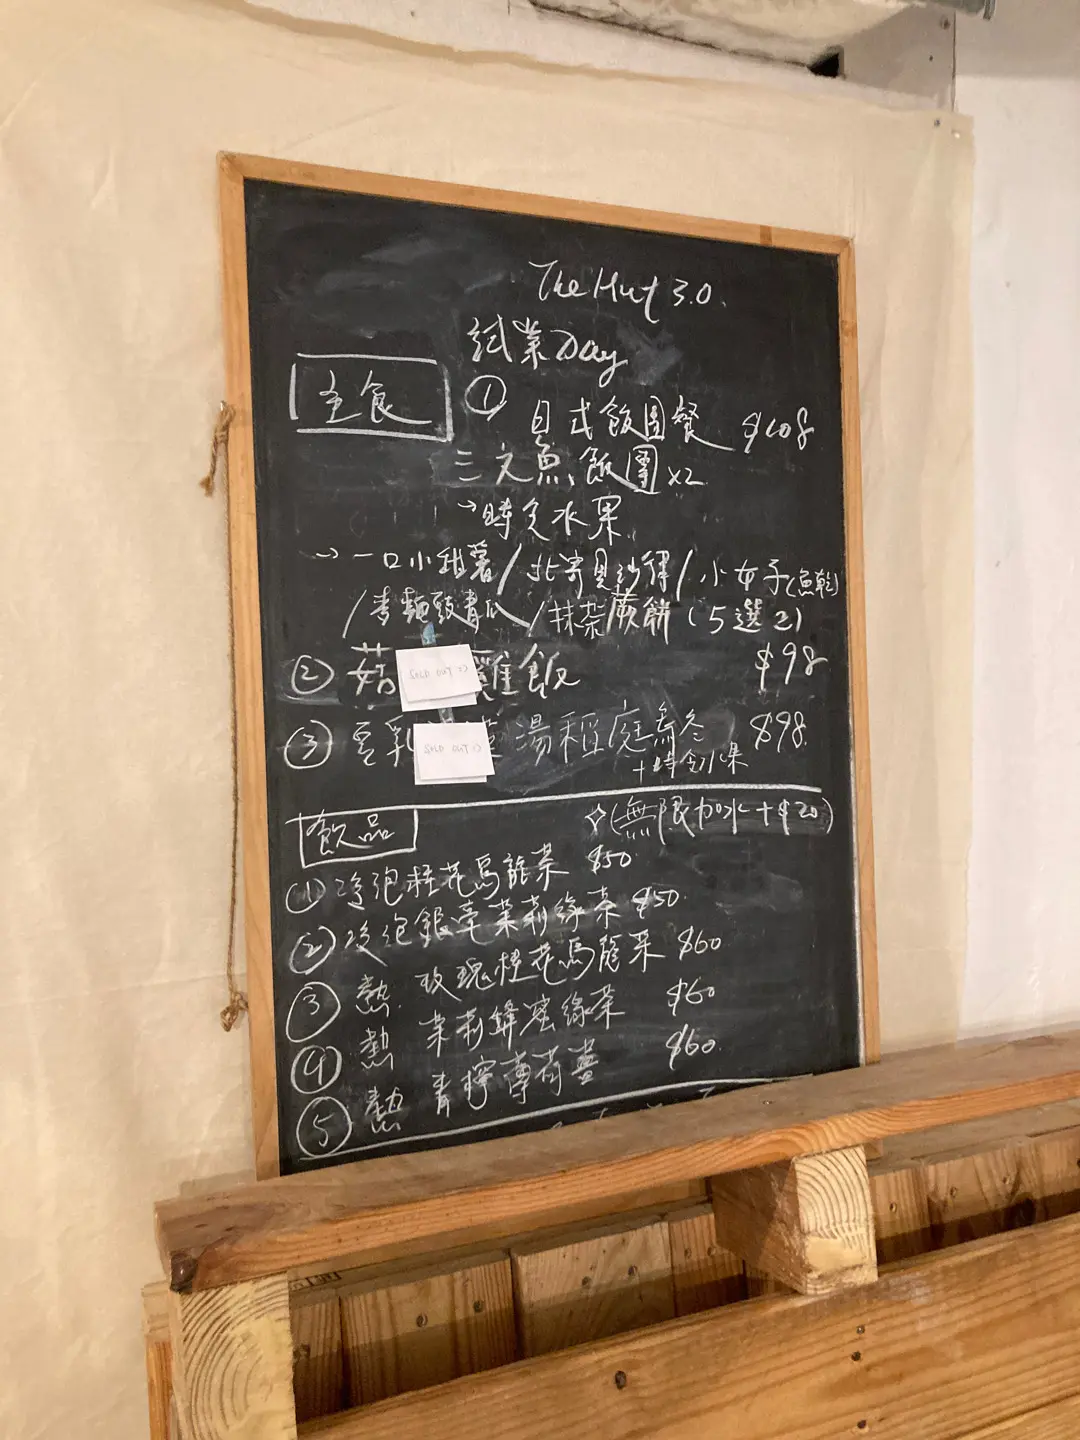 The Hut 3.0.
試業Day
主食
① 日式飯團餐 $108
三文魚飯團 x2
→時令水果
→一口小甜薯/北寄貝沙律/小女子(魚乾)
/青瓜/抹茶蕨餅(5選2)
② 菇 雞飯 $98
SOLD OUT :)
③ 豆乳 湯稻庭烏冬 $98
SOLD OUT :)
+時令水果
飲品
☆(無限加水+$20)
① 冷泡桂花烏龍茶 $50
② 冷泡銀毫茉莉綠茶 $50
③ 熱 玫瑰桂花烏龍茶 $60
④ 熱 茉莉蜂蜜綠茶 $60
⑤ 熱 青檸薄荷薑 $60